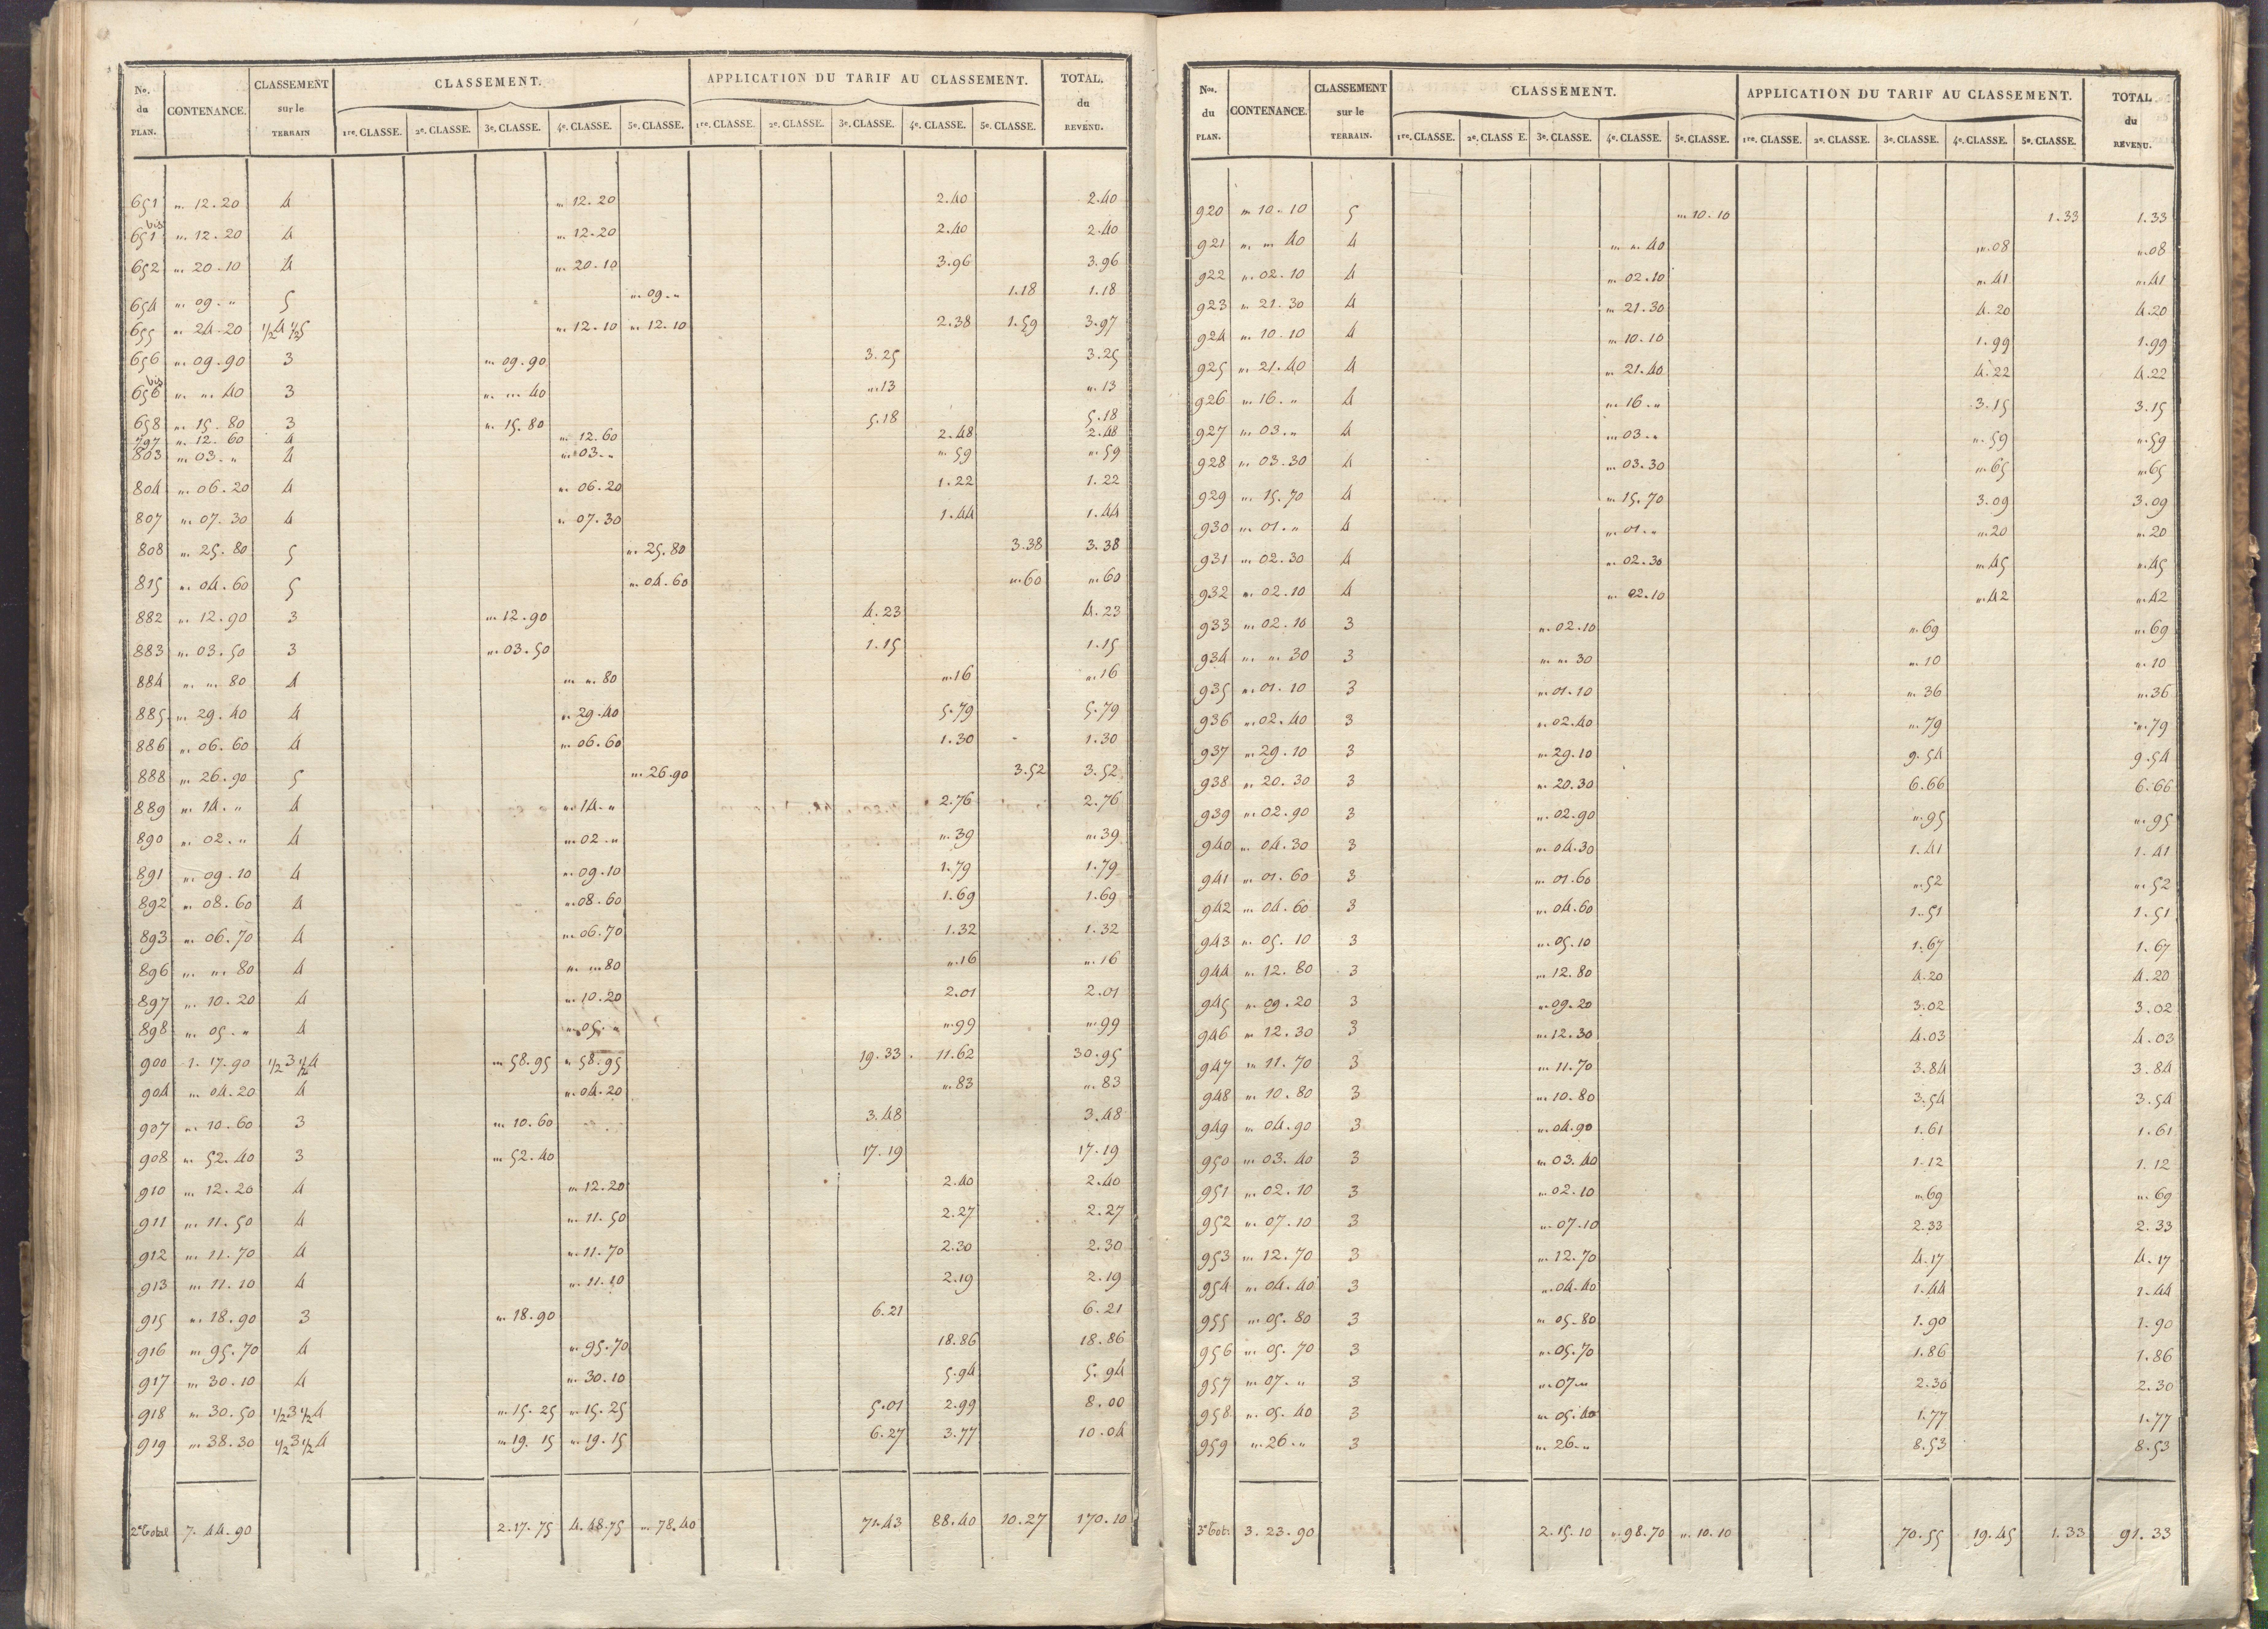 No. du PLAN. CONTENANCE. CLASSEMENT sur le TERRAIN CLASSEMENT. APPLICATION DU TARIF AU CLASSEMENT. TOTAL. du REVENU.
1re. CLASSE. 2e. CLASSE. 3e. CLASSE. 4e. CLASSE. 5e. CLASSE. 1re. CLASSE. 2e. CLASSE. 3e. CLASSE. 4e. CLASSE. 5e. CLASSE.
651 " 12.20 4 " 12.20 2.40 2.40
651 bis " 12.20 4 " 12.20 2.40 2.40
652 " 20.10 4 " 20.10 3.96 3.96
654 " 09. " 5 " 09. " 1.18 1.18
655 " 24.20 1/2 4 1/2 5 " 12.10 " 12.10 2.38 1.59 3.97
656 " 09.90 3 " 09.90 3.25 3.25
656 bis " " 40 3 " " 40 ".13 ".13
658 " 15.80 3 " 15.80 5.18 5.18
797 " 12.60 4 " 12.60 2.48 2.48
803 " 03. " 4 " 03. " ".59 ".59
804 " 06.20 4 " 06.20 1.22 1.22
807 " 07.30 4 " 07.30 1.44 1.44
808 " 25.80 5 " 25.80 3.38 3.38
815 " 04.60 5 " 04.60 ".60 ".60
882 " 12.90 3 " 12.90 4.23 4.23
883 " 03.50 3 " 03.50 1.15 1.15
884 " " 80 4 " " 80 ".16 ".16
885 " 29.40 4 " 29.40 5.79 5.79
886 " 06.60 4 " 06.60 1.30 1.30
888 " 26.90 5 " 26.90 3.52 3.52
889 " 14. " 4 " 14. " 2.76 2.76
890 " 02. " 4 " 02. " ".39 ".39
891 " 09.10 4 " 09.10 1.79 1.79
892 " 08.60 4 " 08.60 1.69 1.69
893 " 06.70 4 " 06.70 1.32 1.32
896 " " 80 4 " " 80 ".16 ".16
897 " 10.20 4 " 10.20 2.01 2.01
898 " 05. " 4 " 05. " ".99 ".99
900 1. 17.90 1/2 3 1/2 4 " 58.95 " 58.95 19.33 11.62 30.95
904 " 04.20 4 " 04.20 ".83 ".83
907 " 10.60 3 " 10.60 3.48 3.48
908 " 52.40 3 " 52.40 17.19 17.19
910 " 12.20 4 " 12.20 2.40 2.40
911 " 11.50 4 " 11.50 2.27 2.27
912 " 11.70 4 " 11.70 2.30 2.30
913 " 11.10 4 " 11.10 2.19 2.19
915 " 18.90 3 " 18.90 6.21 6.21
916 " 95.70 4 " 95.70 18.86 18.86
917 " 30.10 4 " 30.10 5.94 5.94
918 " 30.50 1/2 3 1/2 4 " 15.25 " 15.25 5.01 2.99 8.00
919 " 38.30 1/2 3 1/2 4 " 19.15 " 19.15 6.27 3.77 10.04
2e Total 7. 44.90 2.17.75 4.48.75 " 78.40 71.43 88.40 10.27 170.10
Nos. du PLAN. CONTENANCE. CLASSEMENT sur le TERRAIN. CLASSEMENT. APPLICATION DU TARIF AU CLASSEMENT. TOTAL du REVENU.
1re. CLASSE. 2e. CLASS E. 3e. CLASSE. 4e. CLASSE. 5e. CLASSE. 1re. CLASSE. 2e. CLASSE. 3e. CLASSE. 4e. CLASSE. 5e. CLASSE.
920 " 10.10 5 " 10.10 1.33 1.33
921 " " 40 4 " " 40 ".08 ".08
922 " 02.10 4 " 02.10 ".41 ".41
923 " 21.30 4 " 21.30 4.20 4.20
924 " 10.10 4 " 10.10 1.99 1.99
925 " 21.40 4 " 21.40 4.22 4.22
926 " 16. " 4 " 16. " 3.15 3.15
927 " 03. " 4 " 03. " ".59 ".59
928 " 03.30 4 " 03.30 ".65 ".65
929 " 15.70 4 " 15.70 3.09 3.09
930 " 01. " 4 " 01. " ".20 ".20
931 " 02.30 4 " 02.30 ".45 ".45
932 " 02.10 4 " 02.10 ".42 ".42
933 " 02.10 3 " 02.10 ".69 ".69
934 " " 30 3 " " 30 ".10 ".10
935 " 01.10 3 " 01.10 ".36 ".36
936 " 02.40 3 " 02.40 ".79 ".79
937 " 29.10 3 " 29.10 9.54 9.54
938 " 20.30 3 " 20.30 6.66 6.66
939 " 02.90 3 " 02.90 ".95 ".95
940 " 04.30 3 " 04.30 1.41 1.41
941 " 01.60 3 " 01.60 ".52 ".52
942 " 04.60 3 " 04.60 1.51 1.51
943 " 05.10 3 " 05.10 1.67 1.67
944 " 12.80 3 " 12.80 4.20 4.20
945 " 09.20 3 " 09.20 3.02 3.02
946 " 12.30 3 " 12.30 4.03 4.03
947 " 11.70 3 " 11.70 3.84 3.84
948 " 10.80 3 " 10.80 3.54 3.54
949 " 04.90 3 " 04.90 1.61 1.61
950 " 03.40 3 " 03.40 1.12 1.12
951 " 02.10 3 " 02.10 ".69 ".69
952 " 07.10 3 " 07.10 2.33 2.33
953 " 12.70 3 " 12.70 4.17 4.17
954 " 04.40 3 " 04.40 1.44 1.44
955 " 05.80 3 " 05.80 1.90 1.90
956 " 05.70 3 " 05.70 1.86 1.86
957 " 07. " 3 " 07. " 2.30 2.30
958 " 05.40 3 " 05.40 1.77 1.77
959 " 26. " 3 " 26. " 8.53 8.53
3e Tot. 3. 23.90 2.15.10 ".98.70 ".10.10 70.55 19.45 1.33 91.33